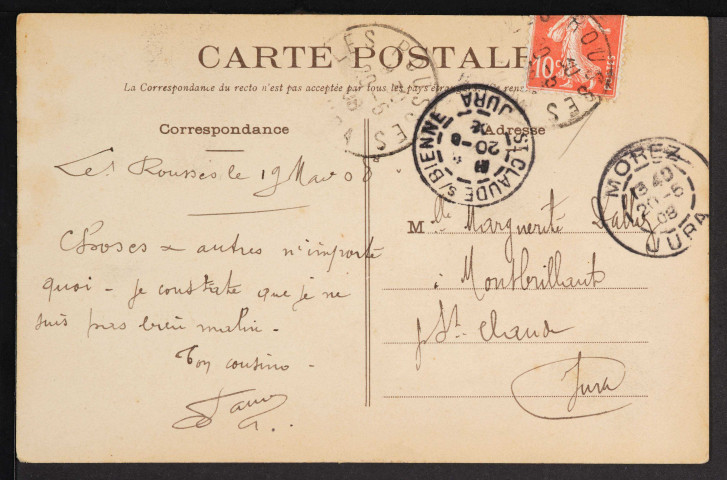 CARTE POSTALE
La Correspondance du recto n'est pas acceptée par tous les pays étrangers
Correspondance
Adresse
Les Rousses le 19 Mai 08
Choses & autres n'importe
quoi - je constate que je ne
suis pas bien malin -
Ton cousin -
Mlle Marguerite
à Montbrillant
p St. Claude
Jura
LES ROUSSES
ST CLAUDE S/ BIENNE
20-5
JURA
MOREZ
13 40
20-5
08
JURA
10c